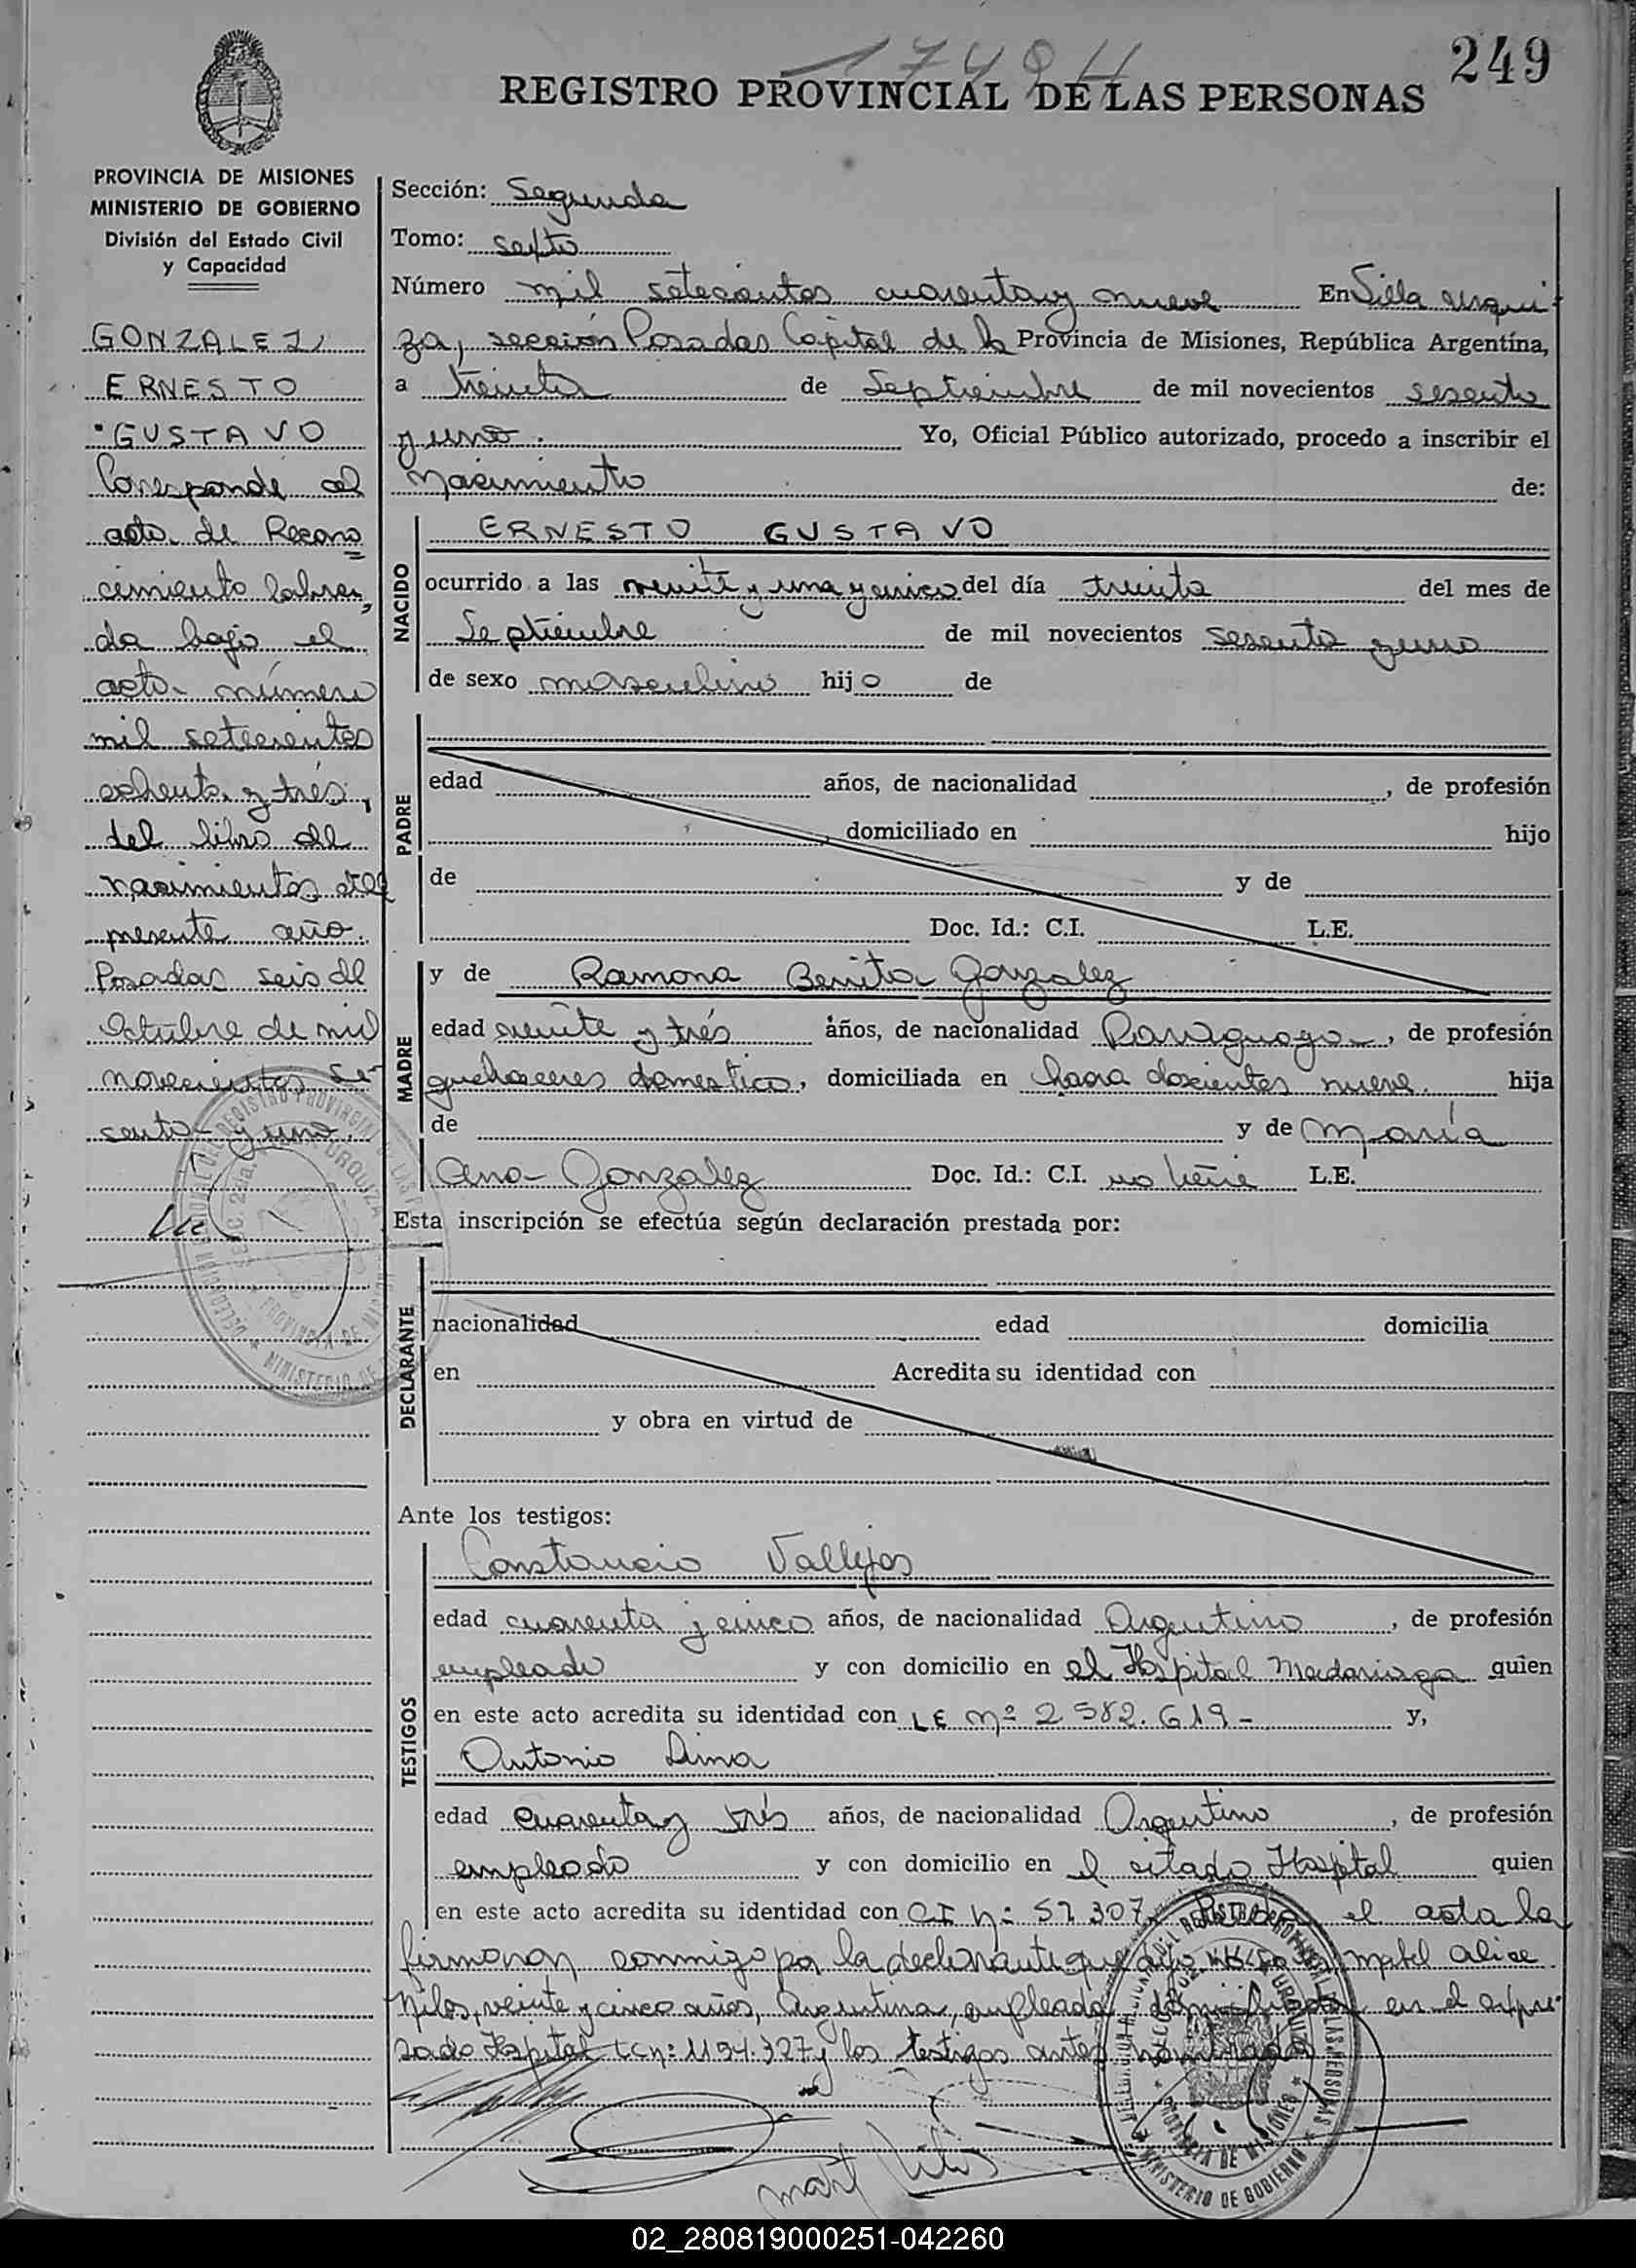 249
REGISTRO PROVINCIAL DE LAS PERSONAS
PROVINCIA DE MISIONES
MINISTERIO DE GOBIERNO
División del Estado Civil
y Capacidad
GONZALEZ,
ERNESTO
GUSTAVO
Corresponde al
acta de Recono
cimiento labra
da bajo el
acta número
mil setecientos
ochenta y trés,
del libro de
nacimientos del
presente año.
Posadas seis de
Octubre de mil
novecientos se-
senta y uno.
Sección: Segunda
Tomo: sexto
Número mil setecientos cuarenta y nueve En Villa Urqui
za, sección Posadas Capital de la Provincia de Misiones, República Argentina,
a treinta de Septiembre de mil novecientos sesenta
y uno. Yo, Oficial Público autorizado, procedo a inscribir el
Nacimiento de:
NACIDO
ERNESTO GUSTAVO
ocurrido a las veinte y una y cinco del día treinta del mes de
Septiembre de mil novecientos sesenta y uno
de sexo masculino hijo de
PADRE
edad años, de nacionalidad , de profesión
domiciliado en hijo
de y de
Doc. Id.: C.I. L.E.
MADRE
y de Ramona Benita Gonzalez
edad veinte y trés años, de nacionalidad Paraguaya, de profesión
quehaceres domestico, domiciliada en chacra doscientos nueve. hija
de y de María
Ana Gonzalez Doc. Id.: C.I. no tiene L.E.
Esta inscripción se efectúa según declaración prestada por:
DECLARANTE
nacionalidad edad domicilia
en Acredita su identidad con
y obra en virtud de
Ante los testigos:
TESTIGOS
Constancio Vallejos
edad cuarenta y cinco años, de nacionalidad Argentino, de profesión
empleado y con domicilio en el Hospital Madariaga quien
en este acto acredita su identidad con LE Nº 2.582.619- y,
Antonio Lima
edad cuarenta y trés años, de nacionalidad Argentino, de profesión
empleado y con domicilio en el citado Hospital quien
en este acto acredita su identidad con CI Nº 52307, el acta la
firmaron conmigo por la declarante que dijo Mabel Alice
Nilos, veinte y cinco años, Argentina, empleada, domiciliada en el expre-
sado Hospital LC Nº 1194.327 y los testigos antes nombrados
02_280819000251-042260